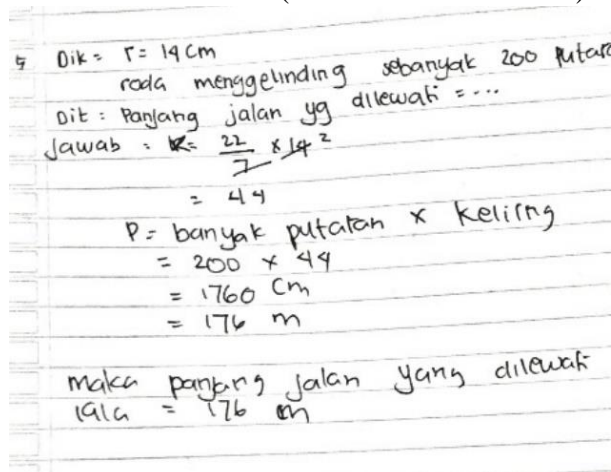 5 Dik = r = 14 cm
roda menggelinding sebanyak 200 putara
Dit : Panjang jalan yg dilewati = ...
Jawab : K = 22/7 x 14 2
= 44
P = banyak putaran x kelilng
= 200 x 44
= 1760 cm
= 176 m
maka panjang jalan yang dilewati
lala = 176 m